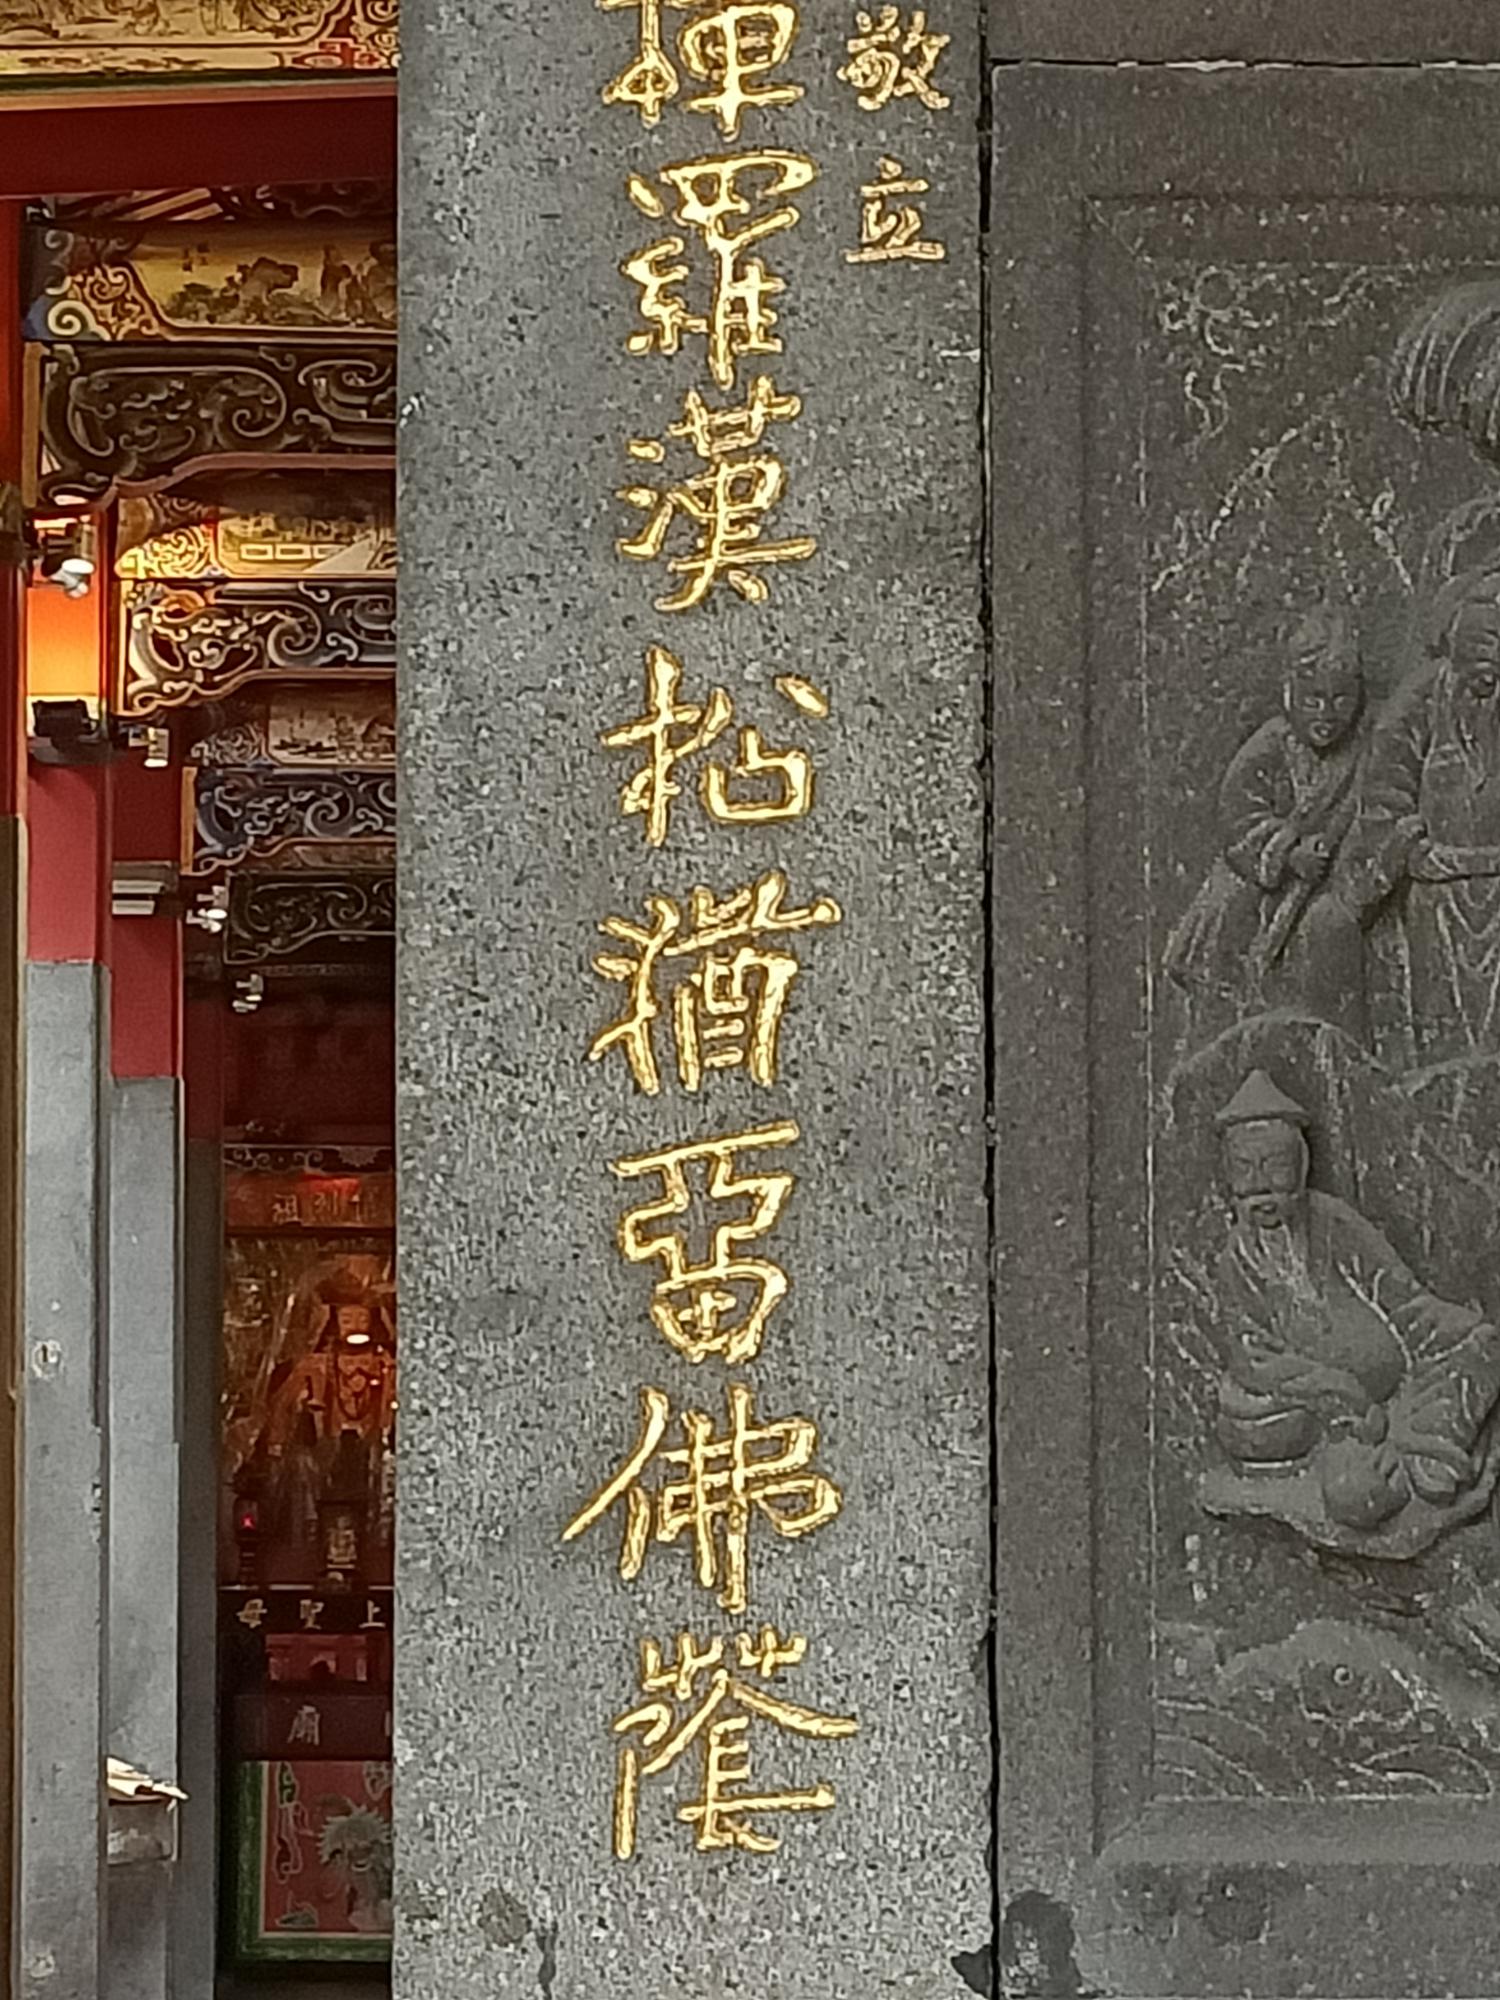 敬立
羅漢松猶畱佛蔭
祖
上聖母
廟